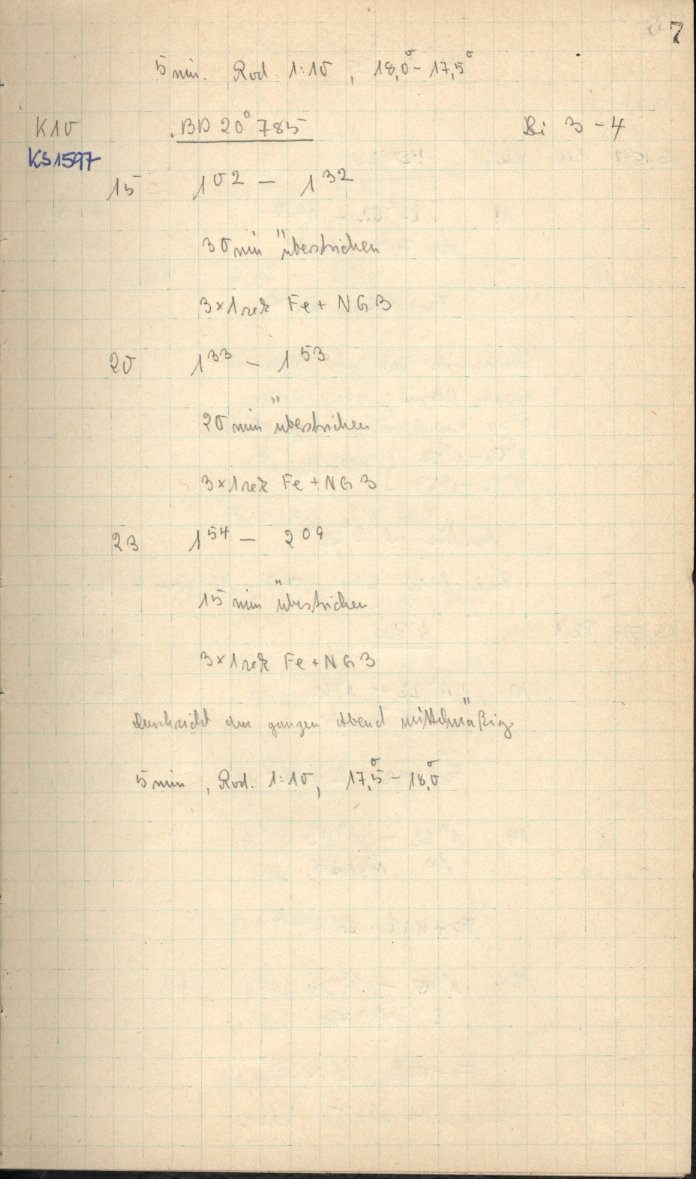 7
5 min. Rod. 1:10, 18,0° - 17,5°
K10 BD 20° 785 Bi 3-4
KS1597
15 1 02 - 1 32
30 min überstrichen
3×1 sek Fe + NG3
20 1 33 - 1 53
20 min überstrichen
3×1 sek Fe + NG3
23 1 54 - 2 09
15 min überstrichen
3×1 sek Fe + NG3
Durchsicht den ganzen Abend mittelmäßig
5 min, Rod. 1:10, 17,5° - 18,0°